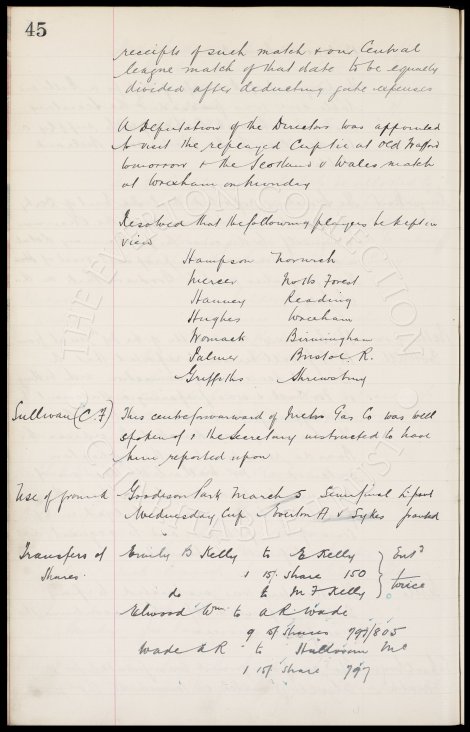 45
receipts of such match & our Central
league match of that date to be equally
divided after deducting gate expenses
A Deputation of the Directors was appointed
to visit the replayed Cup tie at Old Trafford
tomorrow & the Scotland v Wales match
at Wrexham on Monday
Resolved that the following players be kept in
view
Hampson Norwich
Mercer Notts Forest
Hanney Reading
Hughes Wrexham
Womack Birmingham
Palmer Bristol R.
Griffiths Shrewsbury
Sullivan (C.F) This centreforward of Metro Gas Co was well
spoken of & the Secretary instructed to have
him reported upon
Use of ground Goodison Park March 5 Semifinal L'pool
Wednesday Cup Everton A v Sykes granted
Transfers of Shares Emily B Kelly to E Kelly Ent^d
1 15/- share 150 twice
do to M F Kelly
Elwood Wm to A R Wade
9 15/- shares 797/805
Wade A R to
1 15/- share 797
THE EVERTON COLLECTION
CHARITABLE TRUST